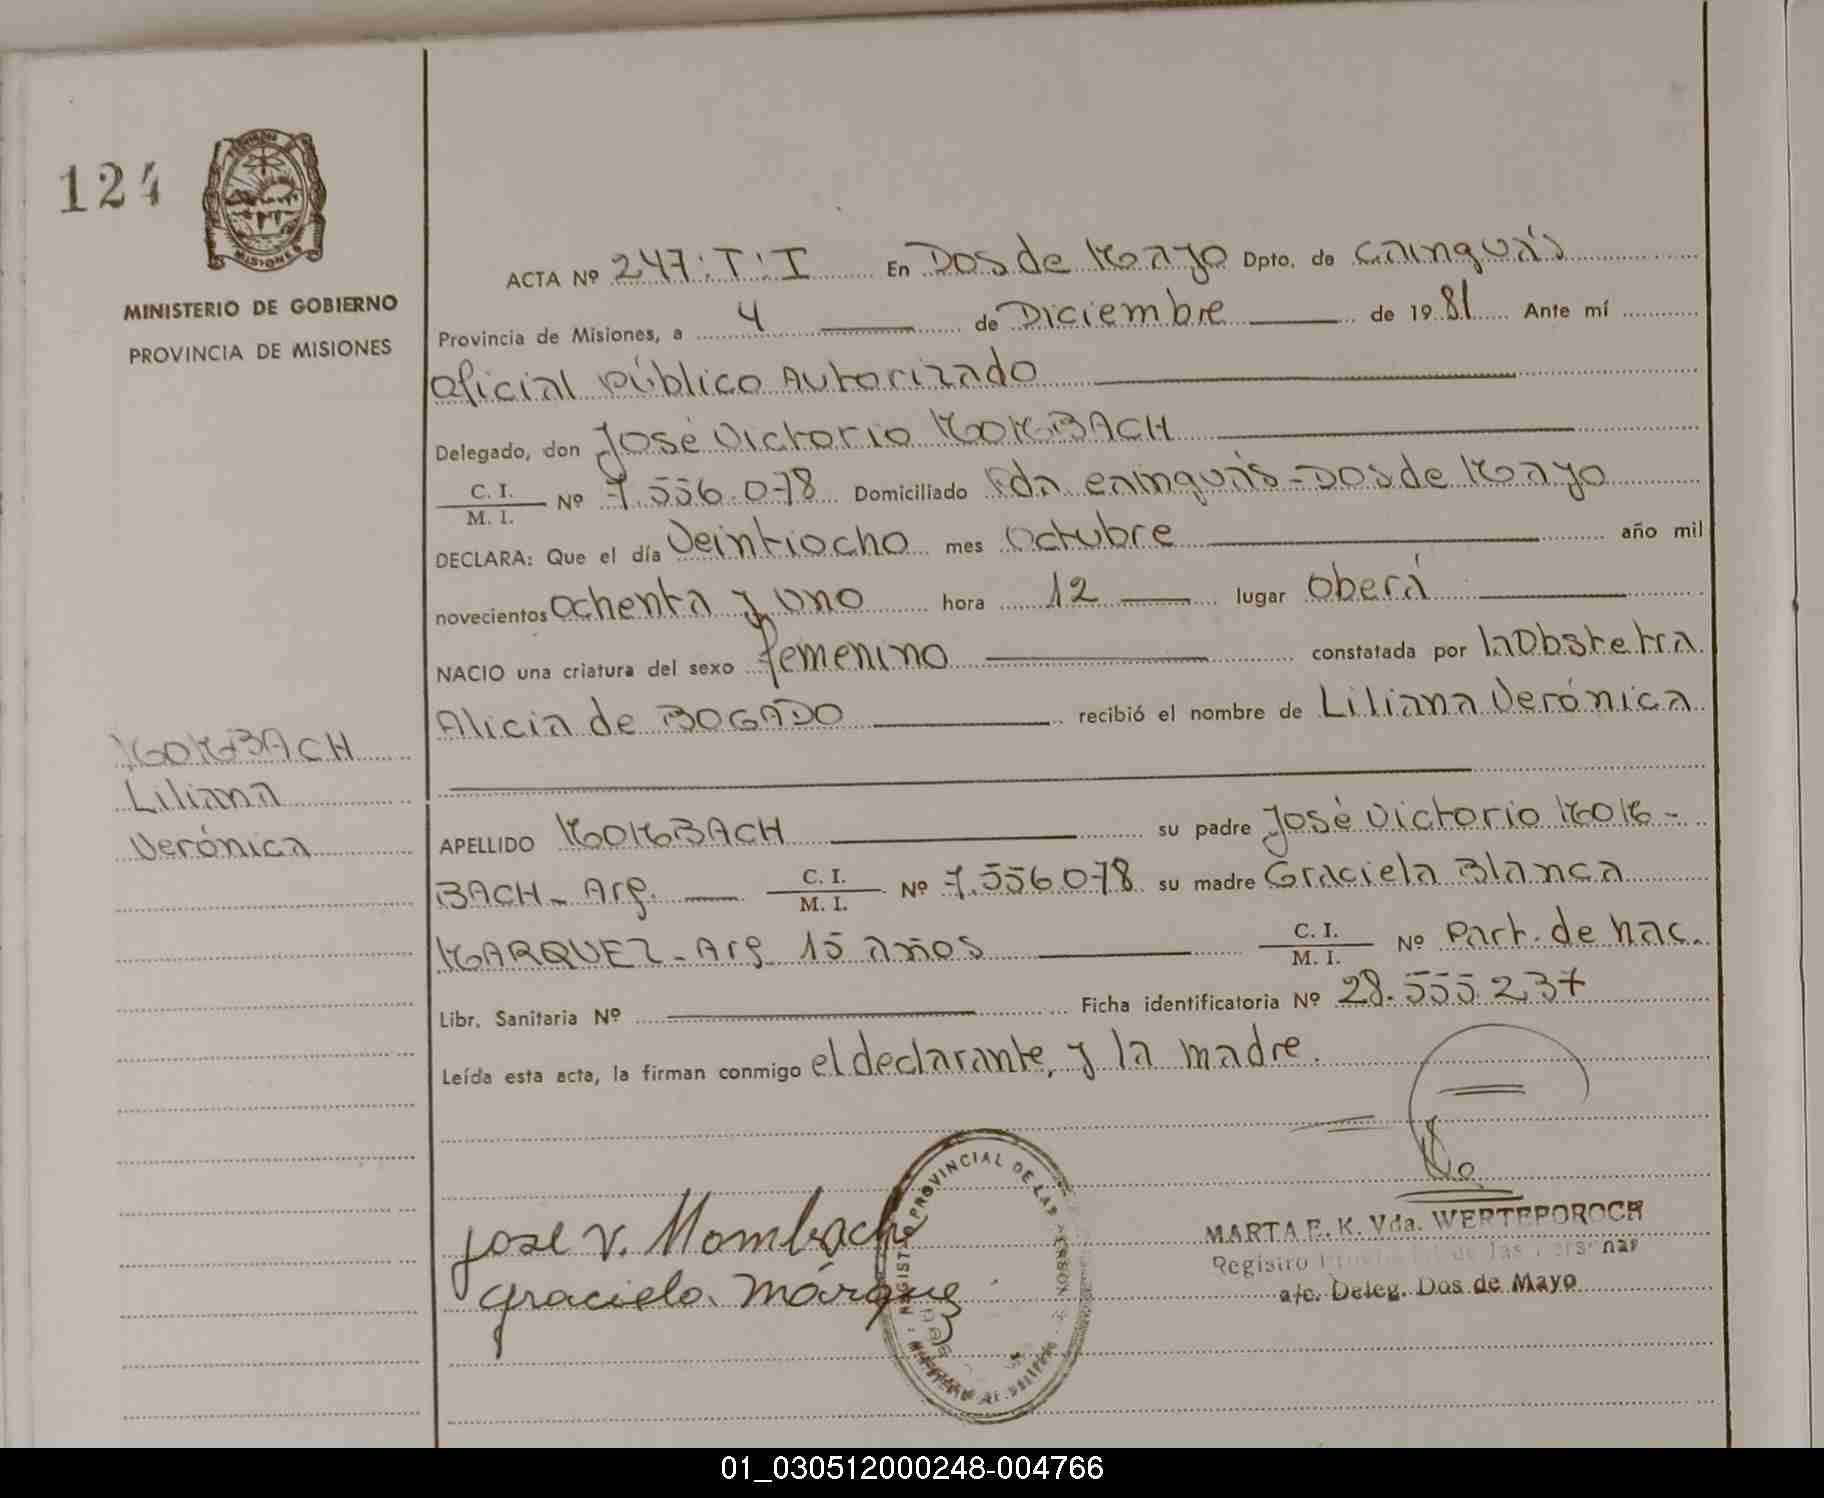 124
MISIONES
MINISTERIO DE GOBIERNO
PROVINCIA DE MISIONES
ACTA Nº 247:T:I En Dos de Mayo Dpto. de Cainguás
Provincia de Misiones, a 4 de Diciembre de 1981 Ante mí
Oficial Público Autorizado
Delegado, don José Victorio MOMBACH
C. I.
M. I.
Nº 7.556.078 Domiciliado Pda Cainguás - Dos de Mayo
DECLARA: Que el día Veintiocho mes Octubre año mil
novecientos Ochenta y Uno hora 12 lugar Oberá
NACIO una criatura del sexo femenino constatada por la Obstetra
Alicia de BOGADO recibió el nombre de Liliana Verónica
MOMBACH
Liliana
Verónica
APELLIDO MOMBACH su padre José Victorio MOM-
BACH - Arg. C. I. M. I. Nº 7.556078 su madre Graciela Blanca
MARQUEZ - Arg. 15 años C. I. M. I. Nº Part. de nac.
Libr. Sanitaria Nº Ficha identificatoria Nº 28.555.237
Leída esta acta, la firman conmigo el declarante, y la madre.
Jose V. Mombach
Graciela Márquez
PROVINCIAL DE LAS
MARTA E. K. Vda. WERTEPOROCH
Registro
a/c. Deleg. Dos de Mayo
01_030512000248-004766